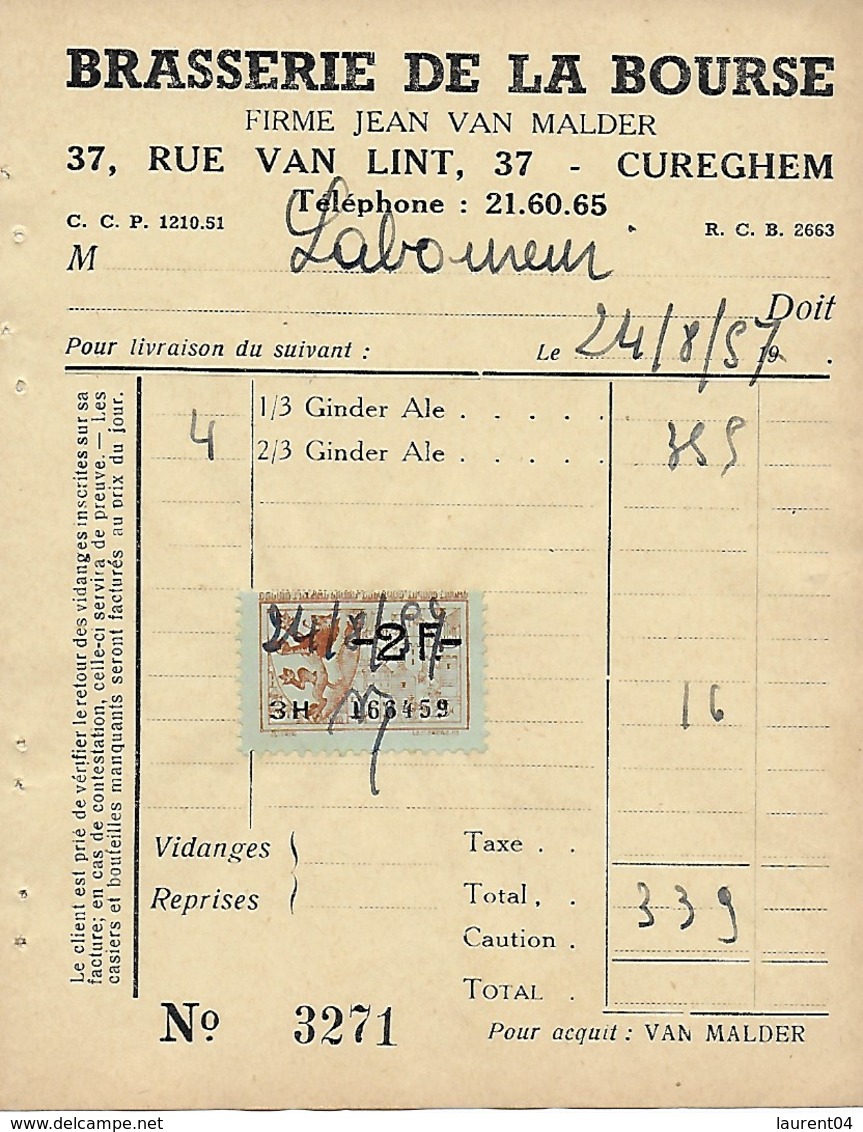 BRASSERIE DE LA BOURSE
FIRME JEAN VAN MALDER
37, RUE VAN LINT, 37 - CUREGHEM
Téléphone : 21.60.65
C. C. P. 1210.51
R. C. B. 2663
M
Doit
Pour livraison du suivant : Le 24/8/57 19 .
Le client est prié de vérifier le retour des vidanges inscrites sur sa
facture; en cas de contestation, celle-ci servira de preuve. — Les
casiers et bouteilles manquants seront facturés au prix du jour.
1/3 Ginder Ale . . . . .
4 2/3 Ginder Ale . . . . .
24/8/57
-2 F-
3H 166459
16
Vidanges
Reprises
Taxe . .
Total, . 339
Caution .
TOTAL .
No 3271
Pour acquit : VAN MALDER
laurent04